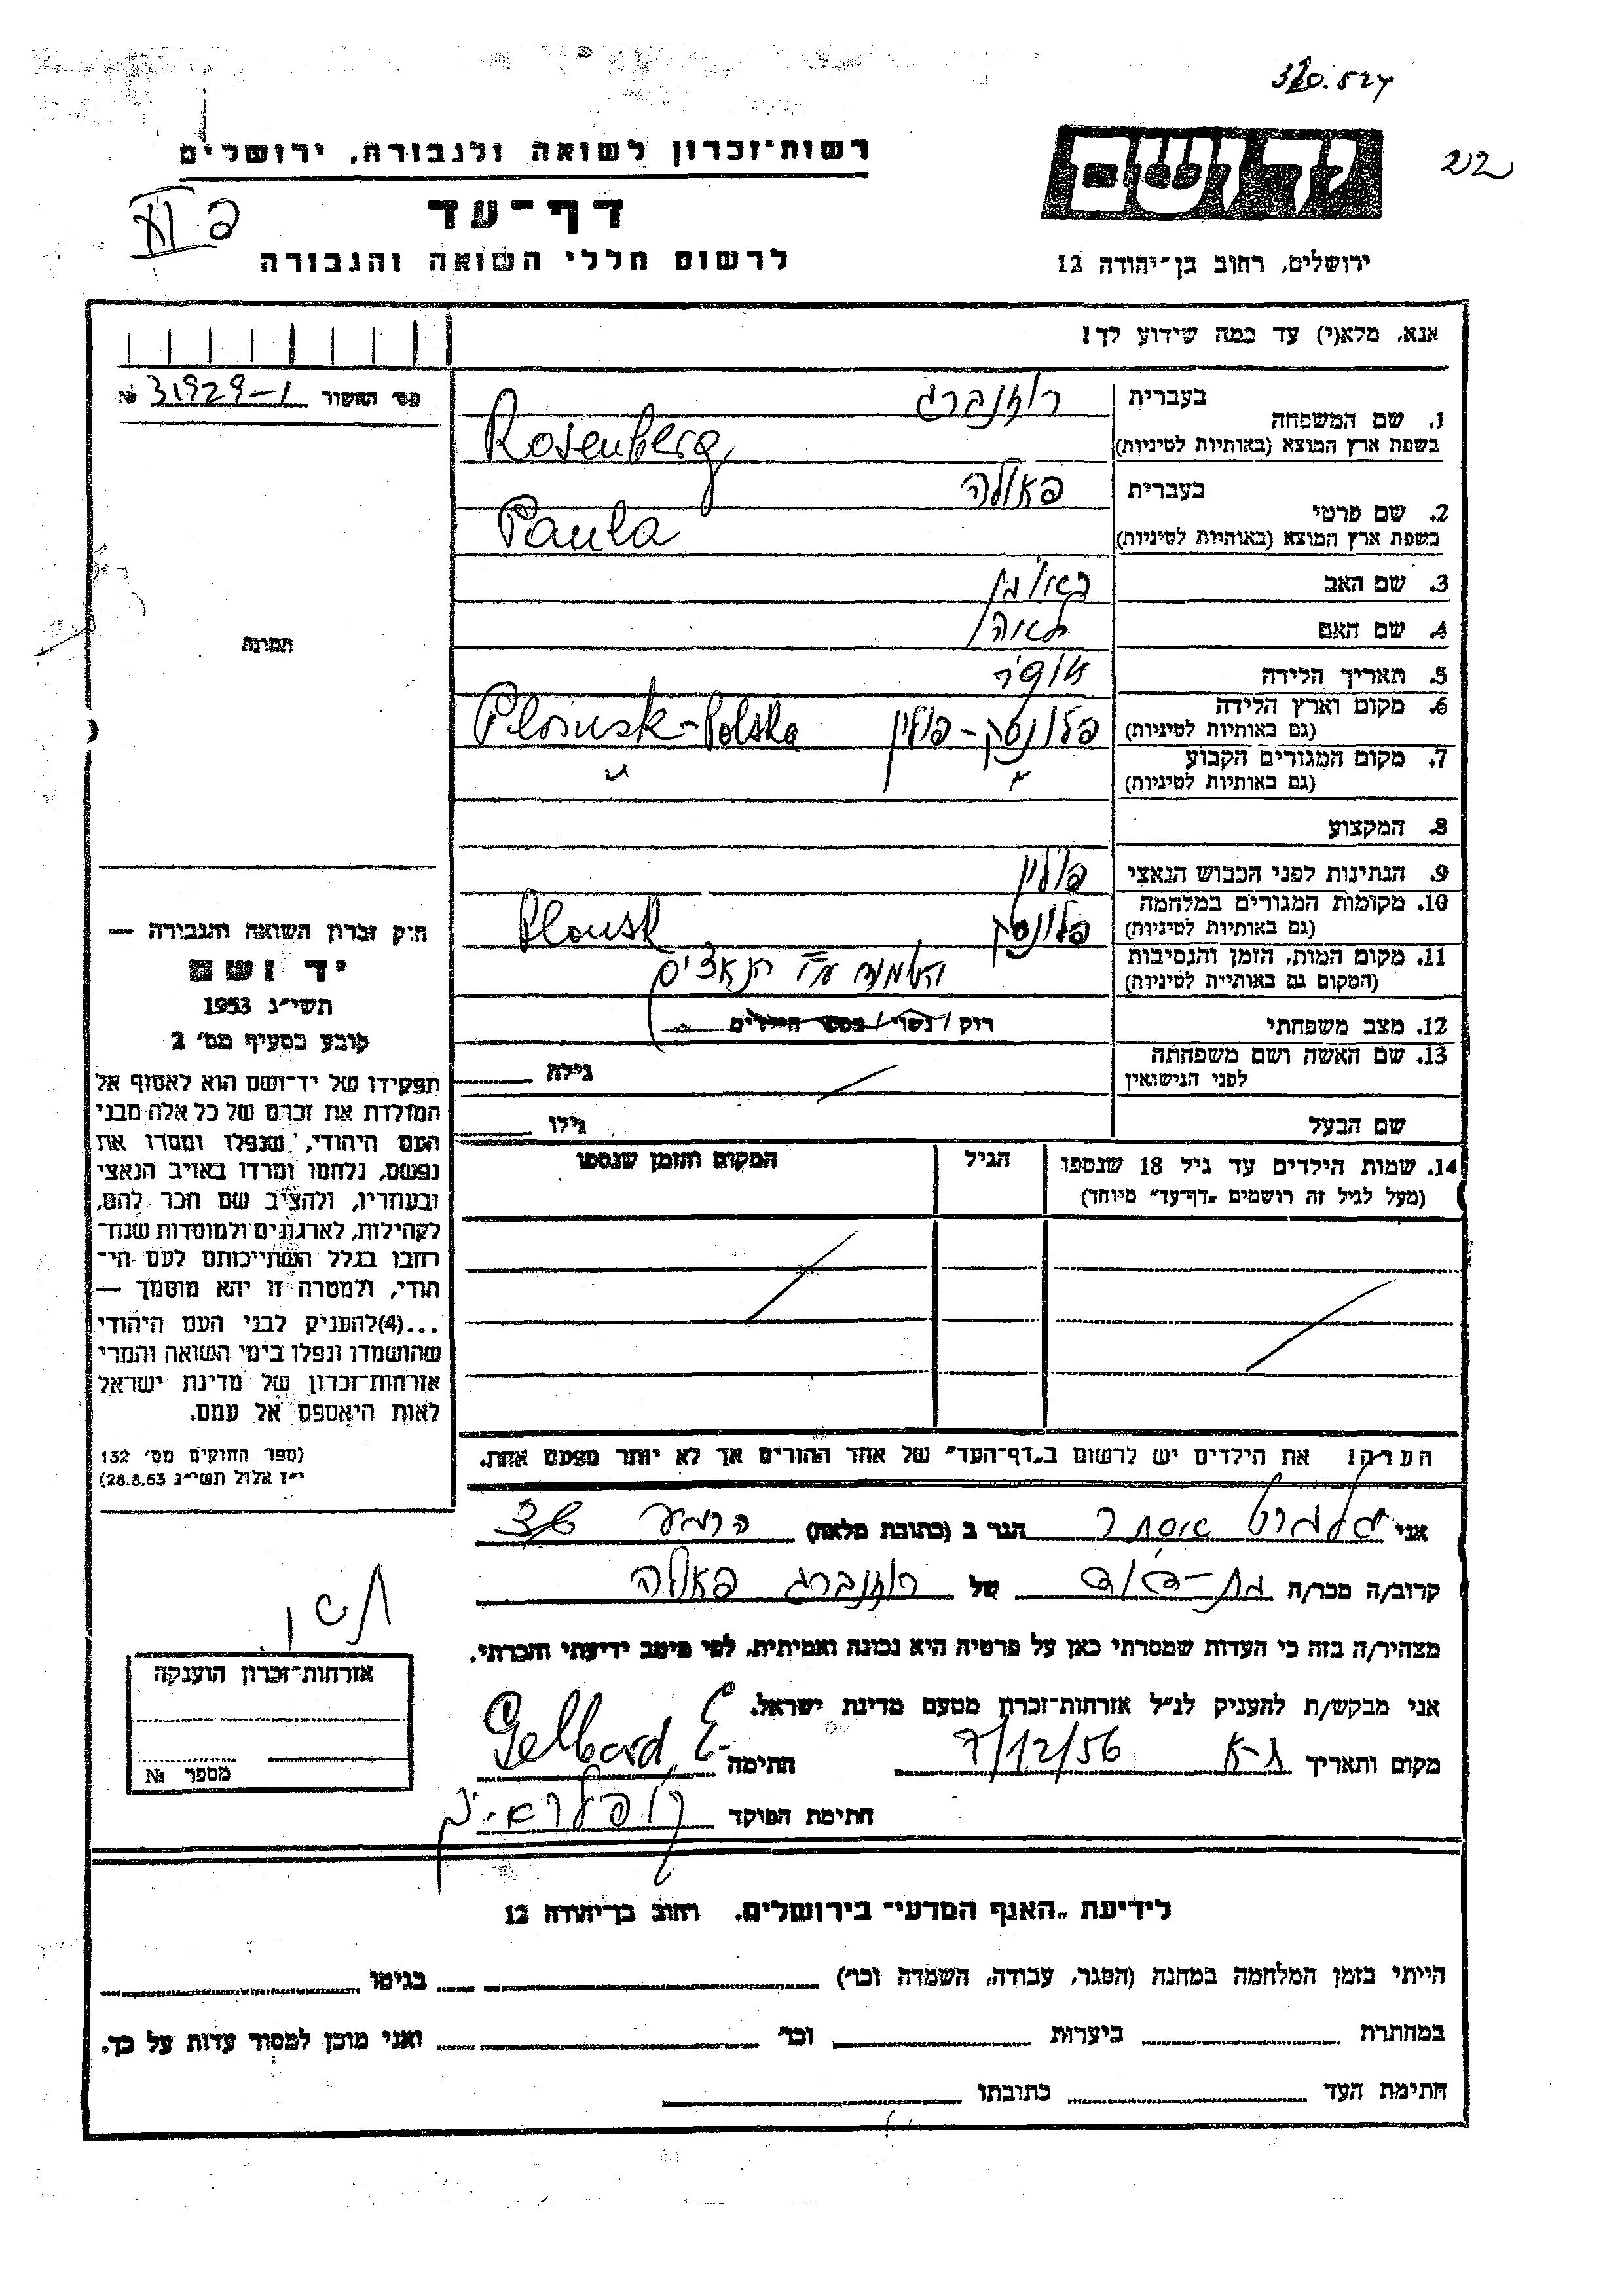 320.524
222
יד ושם
רשות-זכרון לשואה ולגבורה, ירושלים
דף-עד
לרשום חללי השואה והגבורה
ירושלים, רחוב בן-יהודה 12
אנא, מלא(י) עד כמה שידוע לך!
מס' האשור № 31929-1
1. שם המשפחה בעברית רוזנברג
בשפת ארץ המוצא (באותיות לטיניות) Rosenberg
2. שם פרטי בעברית פאולה
בשפת ארץ המוצא (באותיות לטיניות) Paula
3. שם האב
4. שם האם לאה
5. תאריך הלידה
6. מקום וארץ הלידה (גם באותיות לטיניות) פלונסק-פולין Plonsk-Polska
7. מקום המגורים הקבוע (גם באותיות לטיניות) " "
8. המקצוע
9. הנתינות לפני הכבוש הנאצי פולין
10. מקומות המגורים במלחמה (גם באותיות לטיניות) פלונסק Plonsk
11. מקום המות, הזמן והנסיבות (המקום גם באותיות לטיניות) הושמדה ע"י הנאצים
12. מצב משפחתי רוק / נשוי / מספר הילדים
13. שם האשה ושם משפחתה לפני הנישואין גילה
שם הבעל גילו
14. שמות הילדים עד גיל 18 שנספו הגיל המקום והזמן שנספו
(מעל לגיל זה רושמים "דף-עד" מיוחד)
תמונה
חוק זכרון השואה והגבורה —
יד ושם
תשי"ג 1953
קובע בסעיף מס' 2
תפקידו של יד-ושם הוא לאסוף אל
המולדת את זכרם של כל אלה מבני
העם היהודי, שנפלו ומסרו את
נפשם, נלחמו ומרדו באויב הנאצי
ובעוזריו, ולהציב שם וזכר להם,
לקהילות, לארגונים ולמוסדות שנח-
רבו בגלל השתייכותם לעם הי-
הודי, ולמטרה זו יהא מוסמך —
...(4) להעניק לבני העם היהודי
שהושמדו ונפלו בימי השואה והמרי
אזרחות-זכרון של מדינת ישראל
לאות היאספם אל עמם.
(ספר החוקים מס' 132
י"ז אלול תשי"ג 28.8.53)
הערה! את הילדים יש לרשום ב"דף-העד" של אחד ההורים אך לא יותר מפעם אחת.
אני גלברט אסתר הגר ב (כתובת מלאה)
קרוב/ה מכר/ה בת-דוד של רוזנברג פאולה
מצהיר/ה בזה כי העדות שמסרתי כאן על פרטיה היא נכונה ואמיתית, לפי מיטב ידיעתי והכרתי.
אני מבקש/ת להעניק לנ"ל אזרחות-זכרון מטעם מדינת ישראל.
מקום ותאריך ת-א 7/12/56 חתימה Gelbard E.
חתימת הפוקד
אזרחות-זכרון הוענקה
מספר №
לידיעת "האגף המדעי" בירושלים, רחוב בן-יהודה 12
הייתי בזמן המלחמה במחנה (הסגר, עבודה, השמדה וכר') בגיטו
במחתרת ביערות וכר' ואני מוכן למסור עדות על כך.
חתימת העד כתובתו